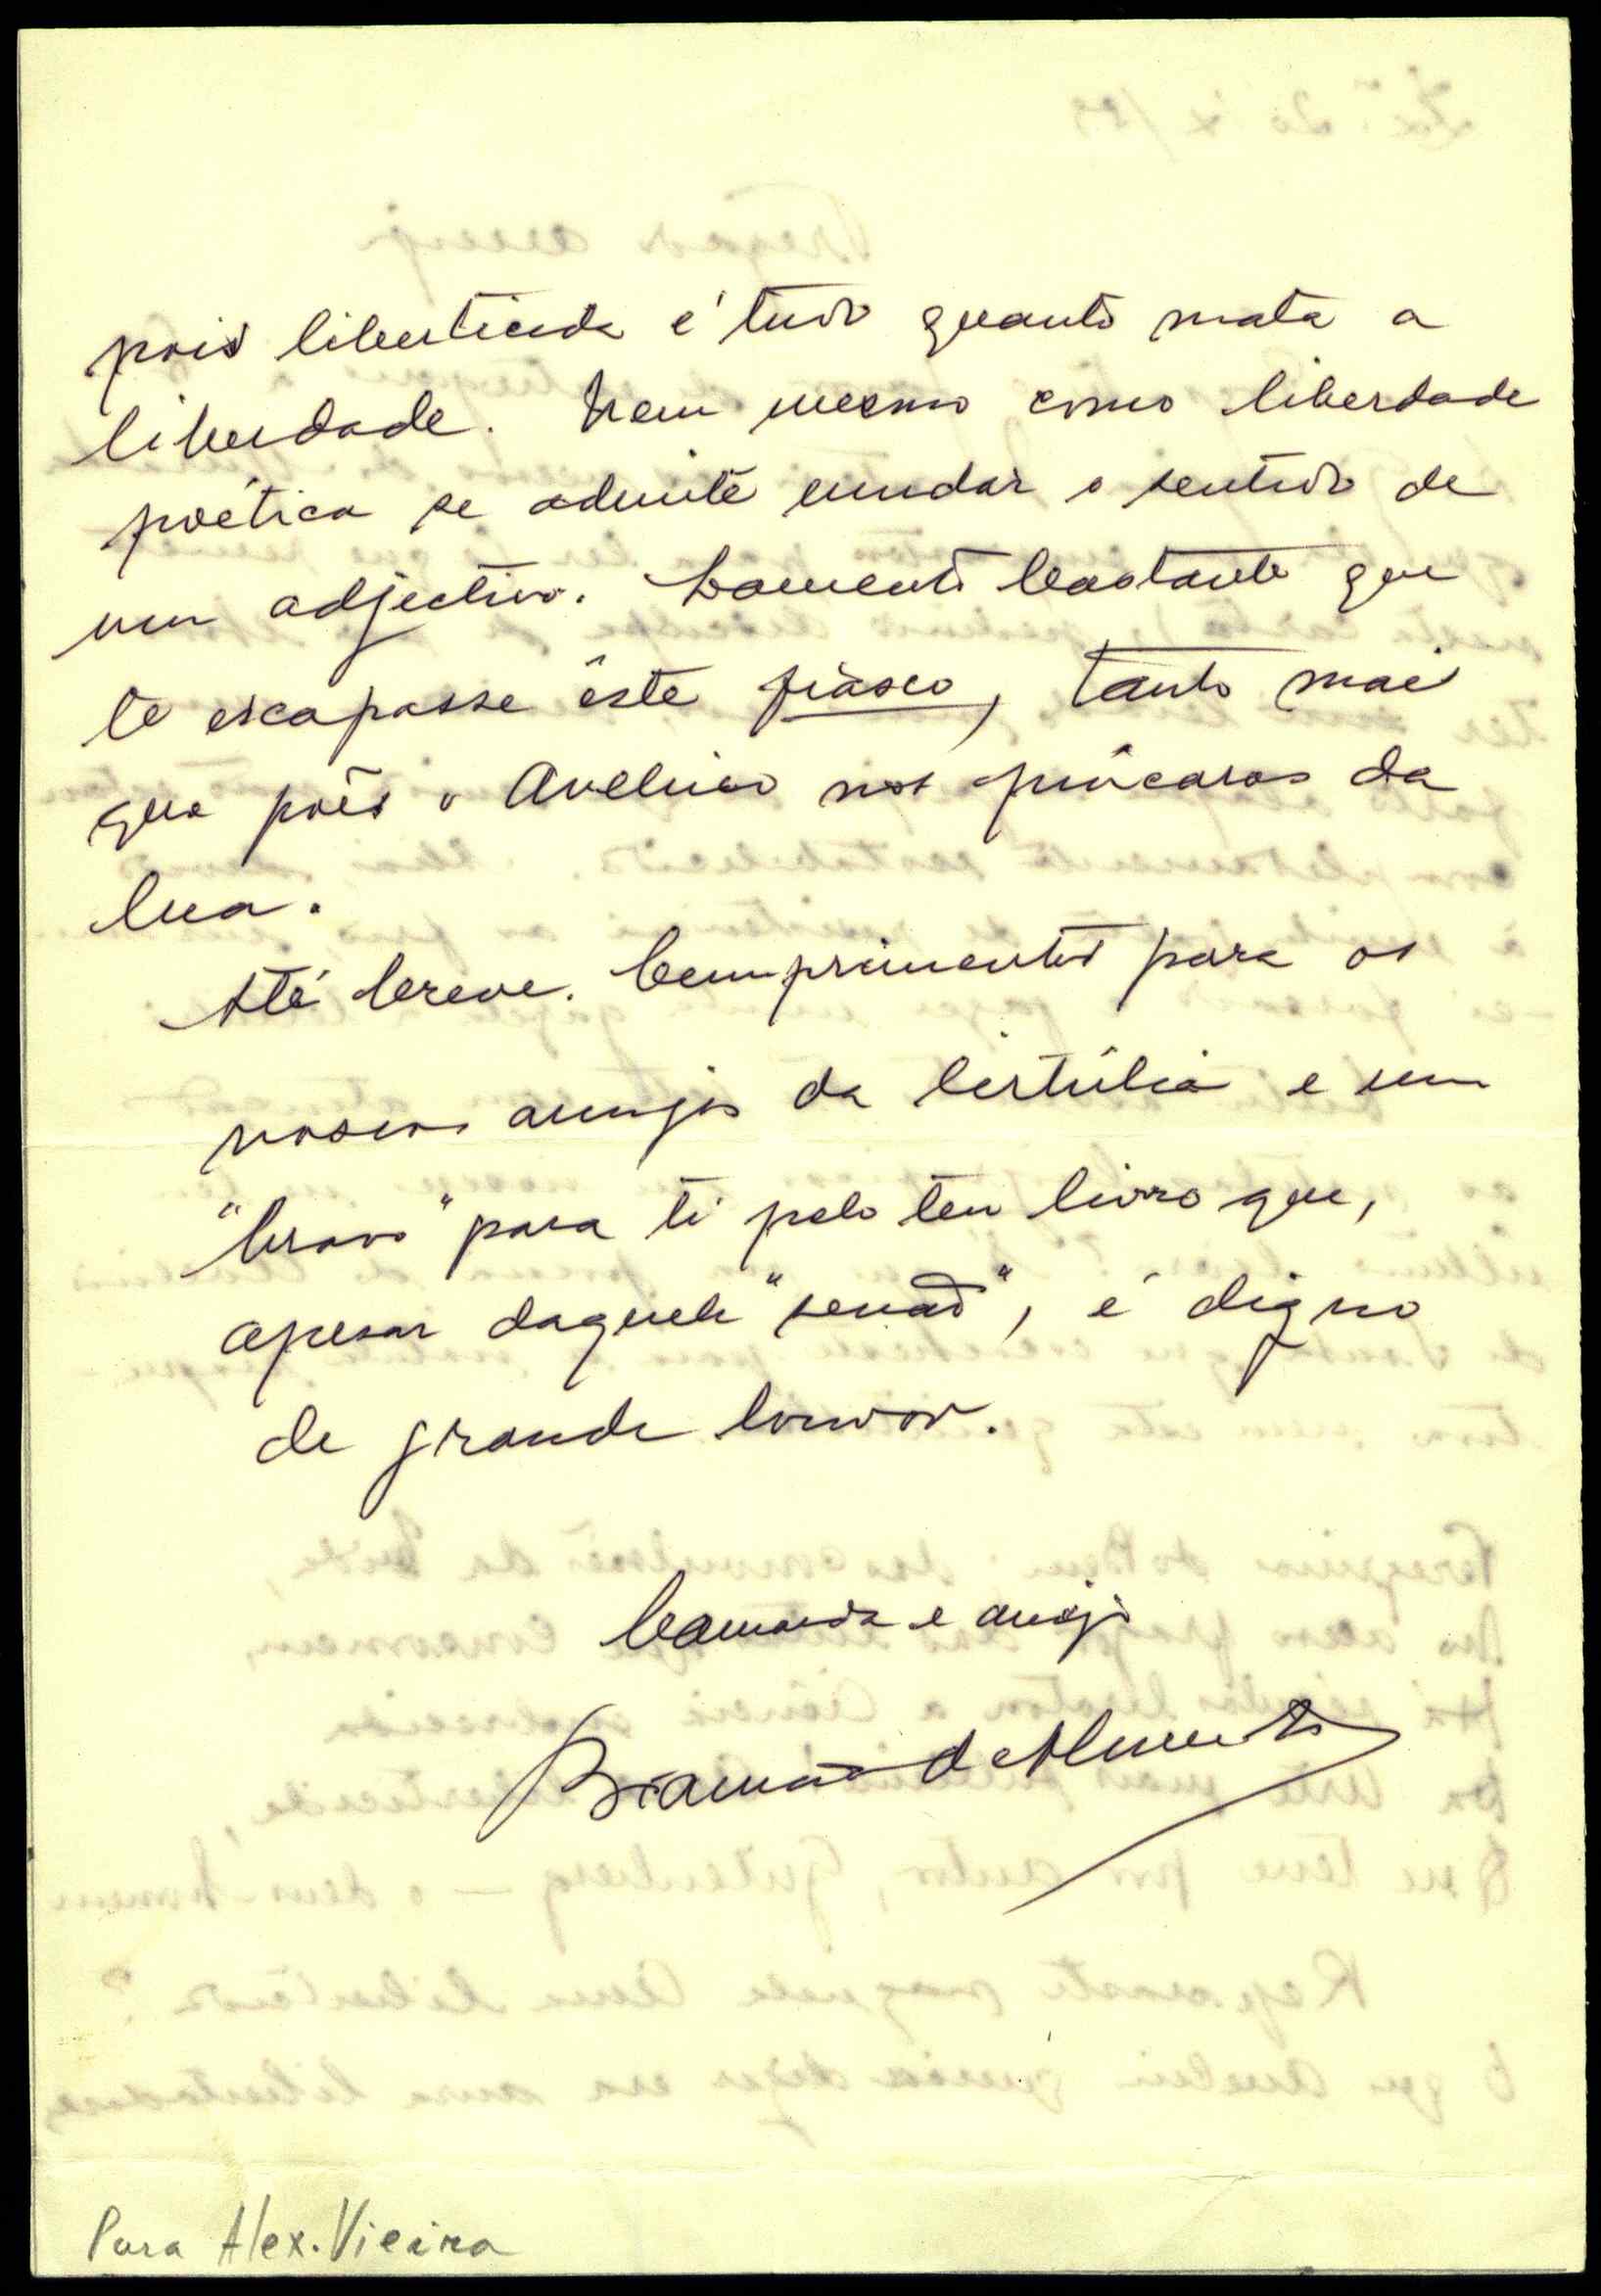 pois liberticida é tudo quanto mata a
liberdade. Nem mesmo como liberdade
poética se admite mudar o sentido de
um adjectivo. Lamento bastante que
te escapasse êste fiasco, tanto mais
que pões o Avelino nos púcaros da
lua.
Até breve. Cumprimentos para os
nossos amigos da tertúlia e um
"bravo" para ti pelo teu livro que,
apesar daquele "senão", é digno
de grande louvor.
Camarada e amigo
de Almeida
Para Alex. Vieira